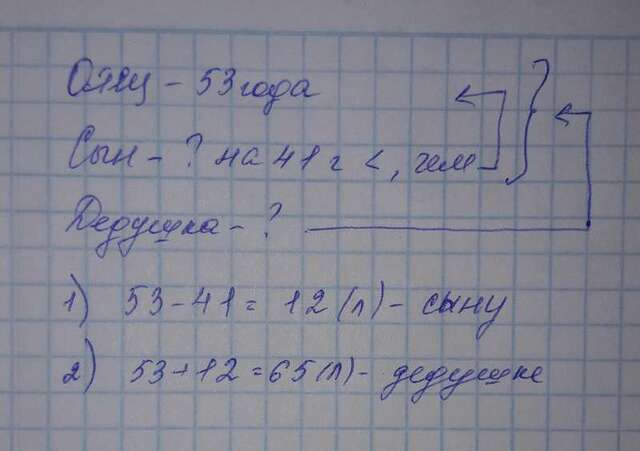 Отец - 53 года
Сын - ? на 41 г <, чем
Дедушка - ?
1) 53-41 = 12 (л) - сыну
2) 53+12=65 (л) - дедушке